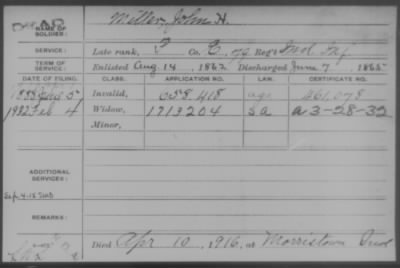 NAME OF SOLDIER: Miller, John H.
SERVICE: Late rank, P Co. E, 79 Reg't Ind. Inf
TERM OF SERVICE: Enlisted Aug 14, 1862 Discharged June 7, 1865
DATE OF FILING. CLASS. APPLICATION NO. LAW. CERTIFICATE NO.
Invalid, 658.418 461,078
1932 Feb 4 Widow, 1713204 a 3-28-32
Minor,
ADDITIONAL SERVICES:
REMARKS:
Died Apr 10, 1916, at Morristown Ind